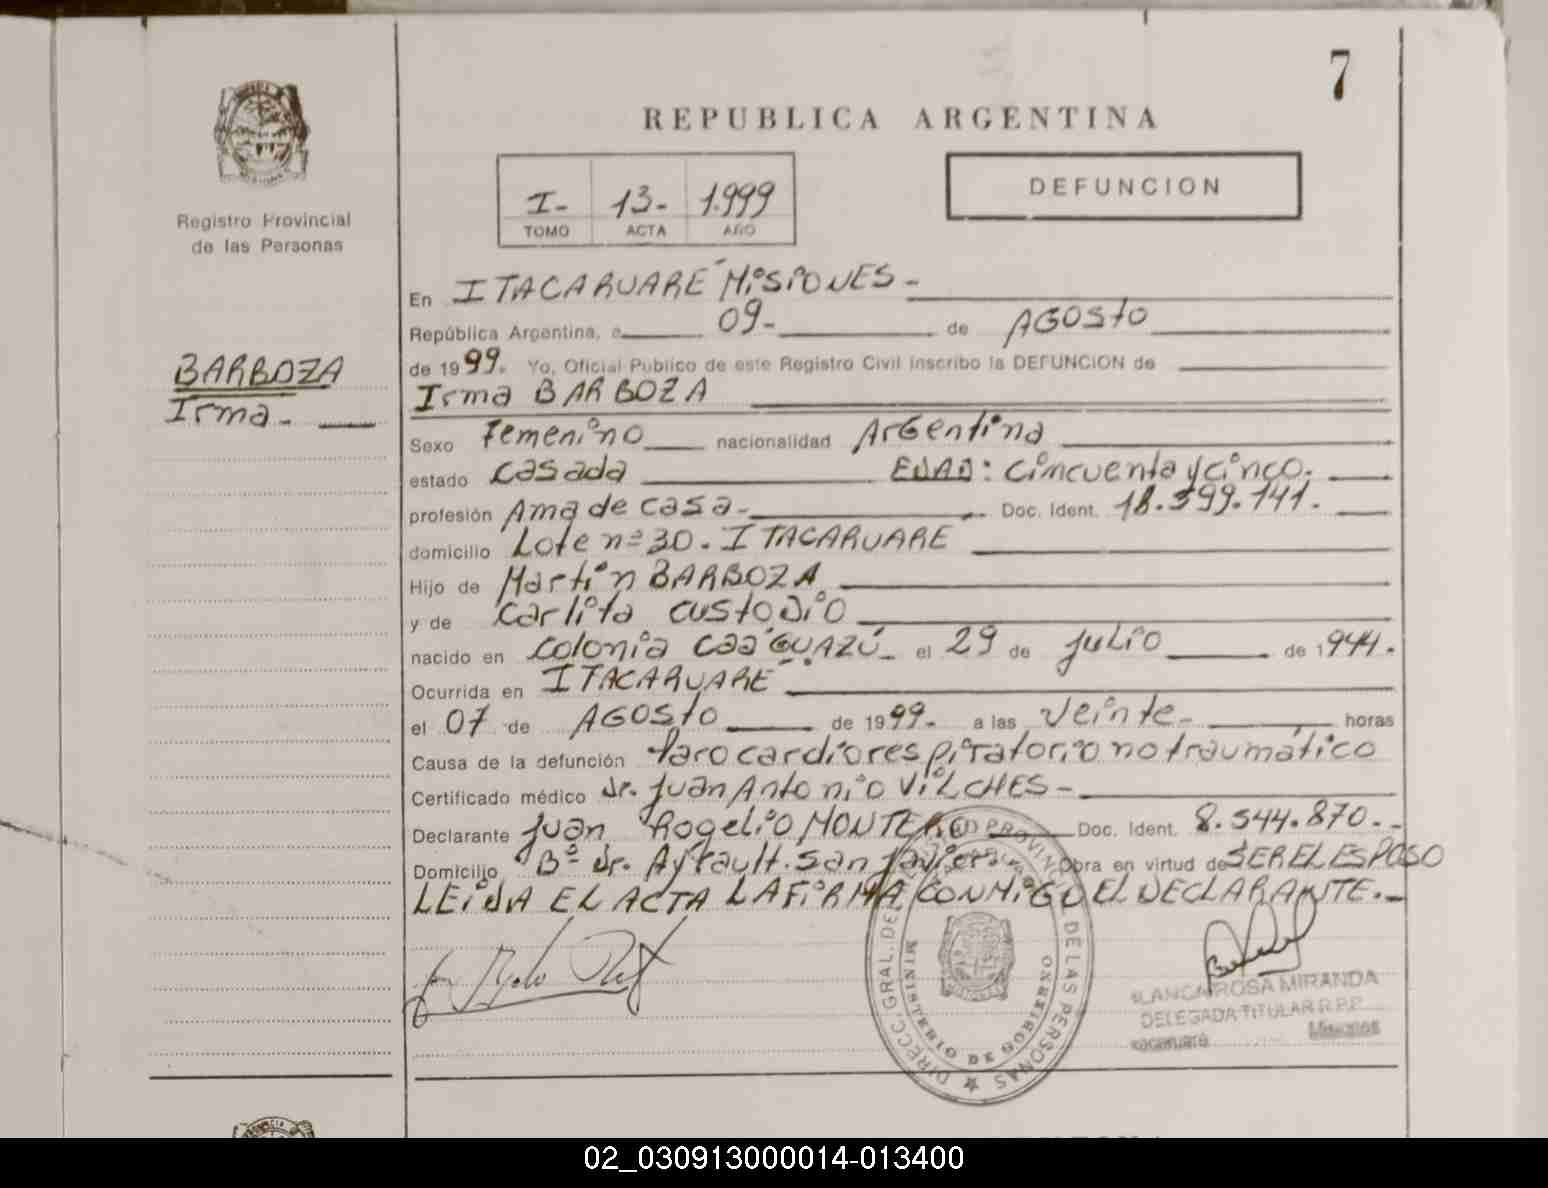 7
REPUBLICA ARGENTINA
Registro Provincial
de las Personas
I- 13- 1.999
TOMO ACTA AÑO
DEFUNCION
BARBOZA
Irma.-
En ITACARUARÉ MISIONES -
República Argentina, a 09- de AGOSTO
de 1999. Yo, Oficial Publico de este Registro Civil inscribo la DEFUNCION de
Irma BARBOZA
Sexo Femenino nacionalidad Argentina
estado casada EDAD: cincuenta y cinco.
profesión Ama de casa.- Doc. Ident. 18.399.141.
domicilio Lote nº 30. ITACARUARE
Hijo de Martín BARBOZA
y de Carlita CUSTODIO
nacido en Colonia CAA GUAZÚ_ el 29 de julio de 1944.
Ocurrida en ITACARUARÉ
el 07 de AGOSTO de 1999. a las veinte- horas
Causa de la defunción Parocardiorespiratorio no traumático
Certificado médico Dr. Juan Antonio VILCHES-
Declarante Juan Rogelio MONTERO Doc. Ident. 8.544.870.-
Domicilio Bº Dr. Ayrault. San Javier. Obra en virtud de SER EL ESPOSO
LEIDA EL ACTA LA FIRMA CONMIGO EL DECLARANTE.-
DIRECC. GRAL. DEL PROVIN DE LAS PERSONAS
MINISTERIO DE GOBIERNO
BLANCA ROSA MIRANDA
DELEGADA TITULAR R.P.P.
Itacaruaré Misiones
02_030913000014-013400